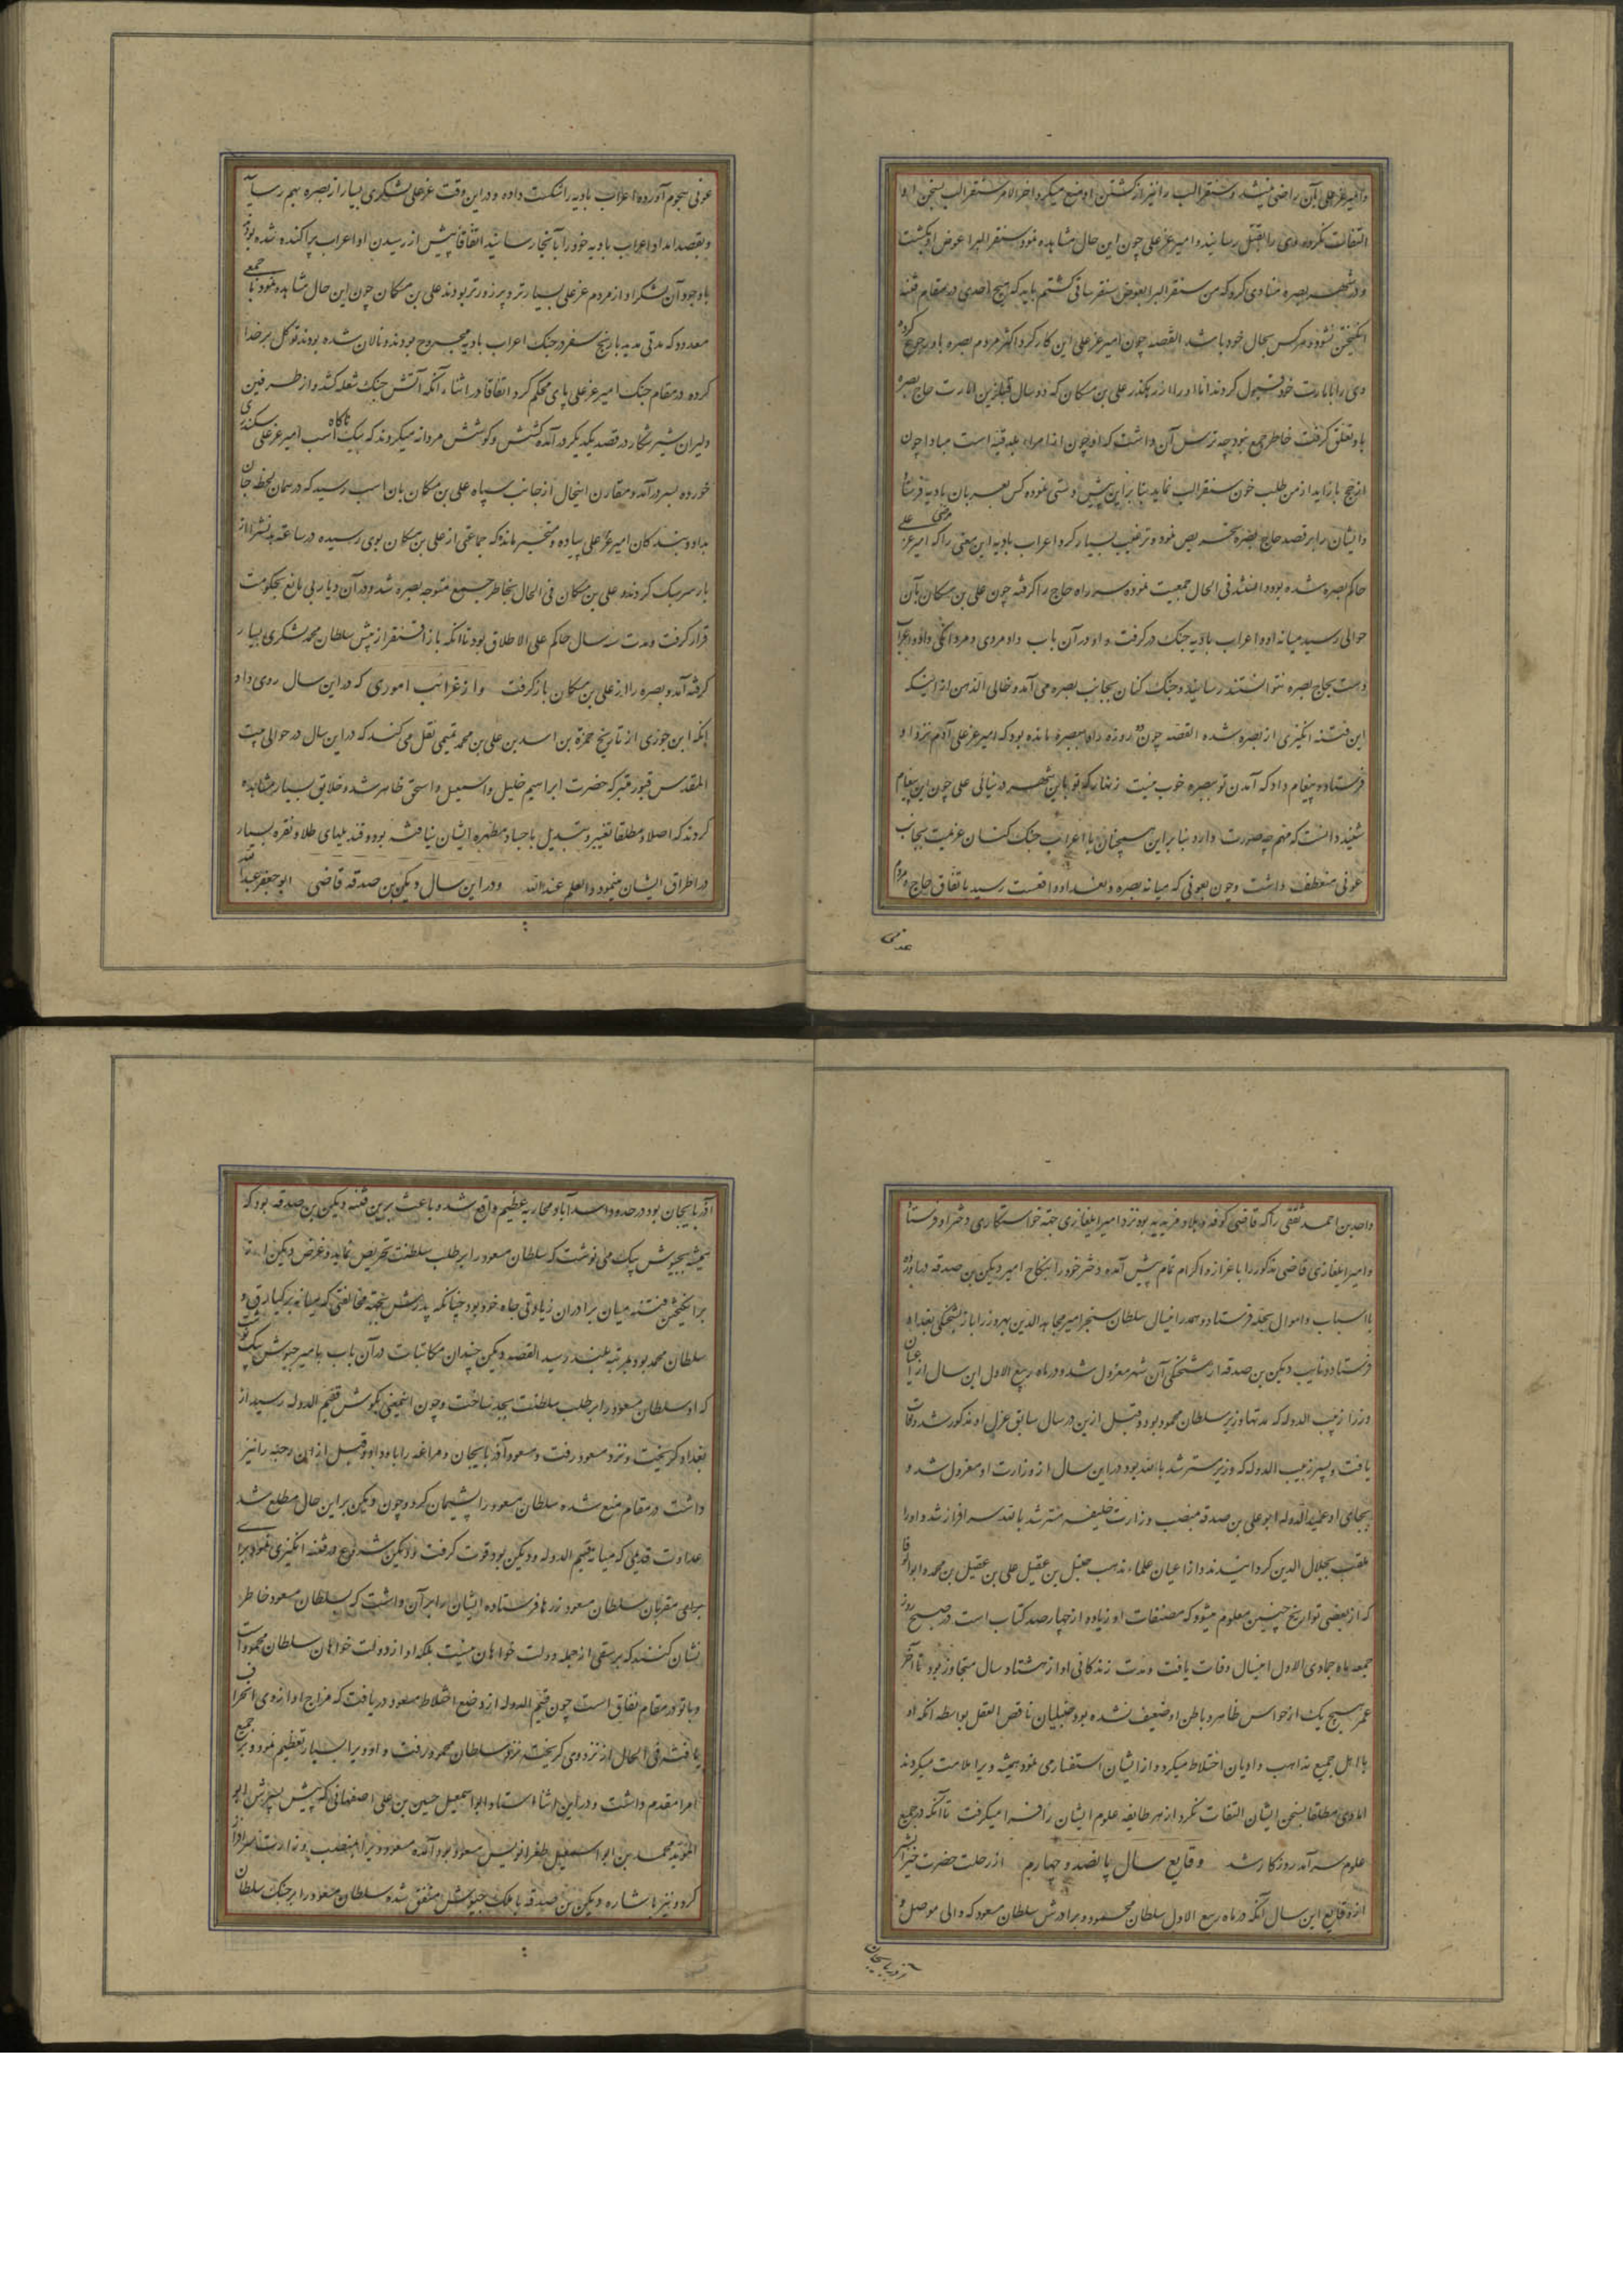 و امیر غزعلی بآن راضی نمیشد و سنقرالب را نیز از کشتن او منع میکرد اخرالامر سنقرالب بسخن او
التفات نکرده وی را بقتل رسانید و امیر غزعلی چون این حال مشاهده نمود سنقرالبرا عوض او بکشت
و در شهر بصره منادی کرد که من سنقرالبرا بعوض سنقر ساقی کشتم باید که هیچ احدی در مقام فتنه
انگیختن نشود و هر کس بحال خود باشد القصه چون امیر غزعلی این کار کرد اکثر مردم بصره باو رجوع کرده
وی را بامارت خود قبول کردند اما او را از رهگذر علی بن سکان که دو سال قبل ازین امارت حاج بصره
باو تعلق گرفت خاطر جمع نبود چه ترس آن داشت که او چون امرا بلد فتنه است مبادا چون
از حج باز اید از من طلب خون سنقرالب نماید بنا براین پیش دستی نموده کس بعربان بادیه فرستاد
و ایشان را بر قصد حاج بصره تحریص نمود و ترغیب بسیار کرد اعراب بادیه این معنی را که امیر غزعلی
حاکم بصره شده بود دانستند فی الحال جمعیت نموده سر راه حاج را گرفته چون علی بن سکان بآن
حوالی رسید میانه او و اعراب بادیه جنک در گرفت و او در آن باب داد مردی و مردانکی داد و اعراب
دست بحاج بصره نتوانستند رسانید و جنک کنان بجانب بصره می آمد و خالی الذهن از اینکه
این فتنه انکیزی از بصره شده القصه چون دو روزه راه ببصره مانده بود که امیر غزعلی آدم نزد او
فرستاده پیغام داد که آمدن تو ببصره خوب نیست زنهار که تو باین شهر در نیائی علی چون این پیغام
شنید دانست که مهم چه صورت دارد بنا براین سخنان با اعراب جنک کنان عزیمت بجانب
عونی منعطف داشت و چون بعونی که میانه بصره و بغداد واقعست رسید باتفاق حاج و مردم
عونی
عونی هجوم آورده اعراب بادیه را شکست داده و در این وقت غزعلی لشکری بسیار از بصره بهم رسانیده
و بقصد امداد اعراب بادیه خود را بآنجا رسانید اتفاقا پیش از رسیدن او اعراب پراکنده شده بودند
با وجود آن لشکر او از مردم عز علی بسیارتر و پر زورتر بودند علی بن سکان چون این حال مشاهده نمود با جمعی
معدود که مدتی مدید بارنج سفر در جنک اعراب بادیه مجروح بودند و نالان شده بودند توکل بر خدا
کرده در مقام جنک امیر غزعلی پای محکم کرد اتفاقا در اثناء آنکه آتش جنک شعله کشد و از طرفین
دلیران شیر شکار در قصد یکدیکر در آمده کشش و کوشش مردانه میکردند که بیک ناکاه اسب امیر غزعلی سکندری
خورده بسر در آمد و مقارن اینحال از جانب سپاه علی بن سکان بان اسب رسید که در همان لحظه جان
بداد و بند کان امیر غزعلی پیاده و متحیر ماند که جماعتی از علی بن سکان بوی رسیده در ساعت بدنش را از
بار سر سبک کردند و علی بن سکان فی الحال بخاطر جمع متوجه بصره شد و در آن دیار بی مانع بحکومت
قرار کرفت و مدت سه سال حاکم علی الاطلاق بود تا انکه باز اقسنقر از پیش سلطان محمد لشکری بسیار
گرفته آمد و بصره را از علی بن سکان باز گرفت و از غرائب اموری که در این سال روی داد
انکه ابن جوزی از تاریخ حمزة بن اسد بن علی بن محمد تمیمی نقل می کند که در این سال در حوالی بیت
المقدس قبور متبرکه حضرت ابراهیم خلیل و اسمعیل و اسحق ظاهر شد و خلایق بسیار مشاهده
کردند که اصلا و مطلقا تغییر و تبدیل باجساد مطهره ایشان نیافته بود و قندیلهای طلا و نقره بسیار
در اطراف ایشان مینمود و العلم عند الله و در این سال دیکن بن صدقه قاضی ابو جعفر عبد الله
واحد بن احمد ثقفی را که قاضی کوفه و بلاد مزیدیه بود نزد امیر ایلغازی جهة خواستکاری دختر او فرستاد
و امیر ایلغازی قاضی مذکور را با عزاز و اکرام تمام پیش آمده دختر خود را بنکاح امیر دیکن بن صدقه در آورده
با اسباب و اموال بحله فرستاد و هم در اینسال سلطان سنجر امیر مجاهد الدین بهروز را باز بشحنکی بغداد
فرستاد و نایب دیکن بن صدقه از شحنکی آن شهر معزول شد و در ماه ربیع الاول این سال از اعیان
وزرا زینب الدوله که مدتها وزیر سلطان محمود بود و قبل ازین در سال سابق عزل او مذکور شد وفات
یافت و پسر زینب الدوله که وزیر مسترشد بالله بود در این سال از وزارت او معزول شد و
بجای او عمید الدوله ابو علی بن صدقه بمنصب وزارت خلیفه مسترشد بالله سرافراز شد و او را
ملقب بجلال الدین کردانیدند و از اعیان علماء مذهب حنبل بن عقیل علی بن عقیل بن محمد و ابو الوفا
که از بعضی تواریخ چنین معلوم میشود که مصنفات او زیاده از چهارصد کتاب است در صبح روز
جمعه ماه جمادی الاول اینسال وفات یافت و مدت زندکانی او از هشتاد سال متجاوز بود تا آخر
عمر هیچ یک از حواس ظاهر و باطن او ضعیف نشده بود حنبلیان ناقص العقل بواسطه انکه او
با اهل جمیع مذاهب و ادیان اختلاط میکرد و از ایشان استفسار می نمود همیشه ویرا ملامت میکردند
اما وی مطلقا بسخن ایشان التفات نکرد از هر طایفه علوم ایشان را فرا میکرفت تا آنکه در جمیع
علوم سرآمد روزکار شد وقایع سال پانصد و چهارم از رحلت حضرت خیر البشر
از وقایع این سال آنکه در ماه ربیع الاول سلطان محمود و برادرش سلطان مسعود که والی موصل و
آذربایجان
آذربایجان بود در حدود اسدآباد محاربه عظیم واقع شد و باعث بر این فتنه دیکن بن صدقه بود که
همیشه بجیوش بیک می نوشت که سلطان مسعود را بر طلب سلطنت تحریص نماید و غرض دیکن از
برانکیختن فتنه میان برادران زیادتی جاه خود بود چنانکه پدرش بجهة مخالفتی که میانه برکیارق و
سلطان محمد بود بمرتبه بلند رسید القصه دیکن چندان مکاتبات در آن باب بامیر جیوش بیک نوشت
که او سلطان مسعود را بر طلب سلطنت بجد ساخت و چون اینمعنی بکوش قسیم الدوله رسید از
بغداد کریخت و نزد مسعود رفت و مسعود آذربایجان و مراغه را باو داد و قبل از ان رحبه را نیز
داشت در مقام منع شده سلطان مسعود را پشیمان کرد و چون دیکن براین حال مطلع شد
عداوت قدیمی که میانه قسیم الدوله و دیکن بود قوت کرفت و دیکن شروع در فتنه انکیزی نموده برای
مقربان سلطان مسعود زرها فرستاده ایشان را بر آن داشت که سلطان مسعود خاطر
نشان کنند که برسقی از جمله دولت خواهان نیست بلکه او از دولت خواهان سلطان محمود است
و با تو در مقام نفاق است چون قسیم الدوله از وضع اختلاط مسعود دریافت که مزاج او از وی انحراف
یافته فی الحال از نزد وی کریخته نزد سلطان محمود رفت و او ویرا بسیار تعظیم نمود و بر جمیع
امرا مقدم داشت و در این اثناء استاد ابو اسمعیل حسین بن علی اصفهانی که پیش پسرش ابو
المؤید محمد بن ابو اسمعیل طغرا نویس مسعود بود آمده مسعود ویرا بمنصب وزارت سرافراز
کرد و نیز باشاره دیکن بن صدقه با ملک جیوش متفق شده سلطان مسعود را بر جنک سلطان